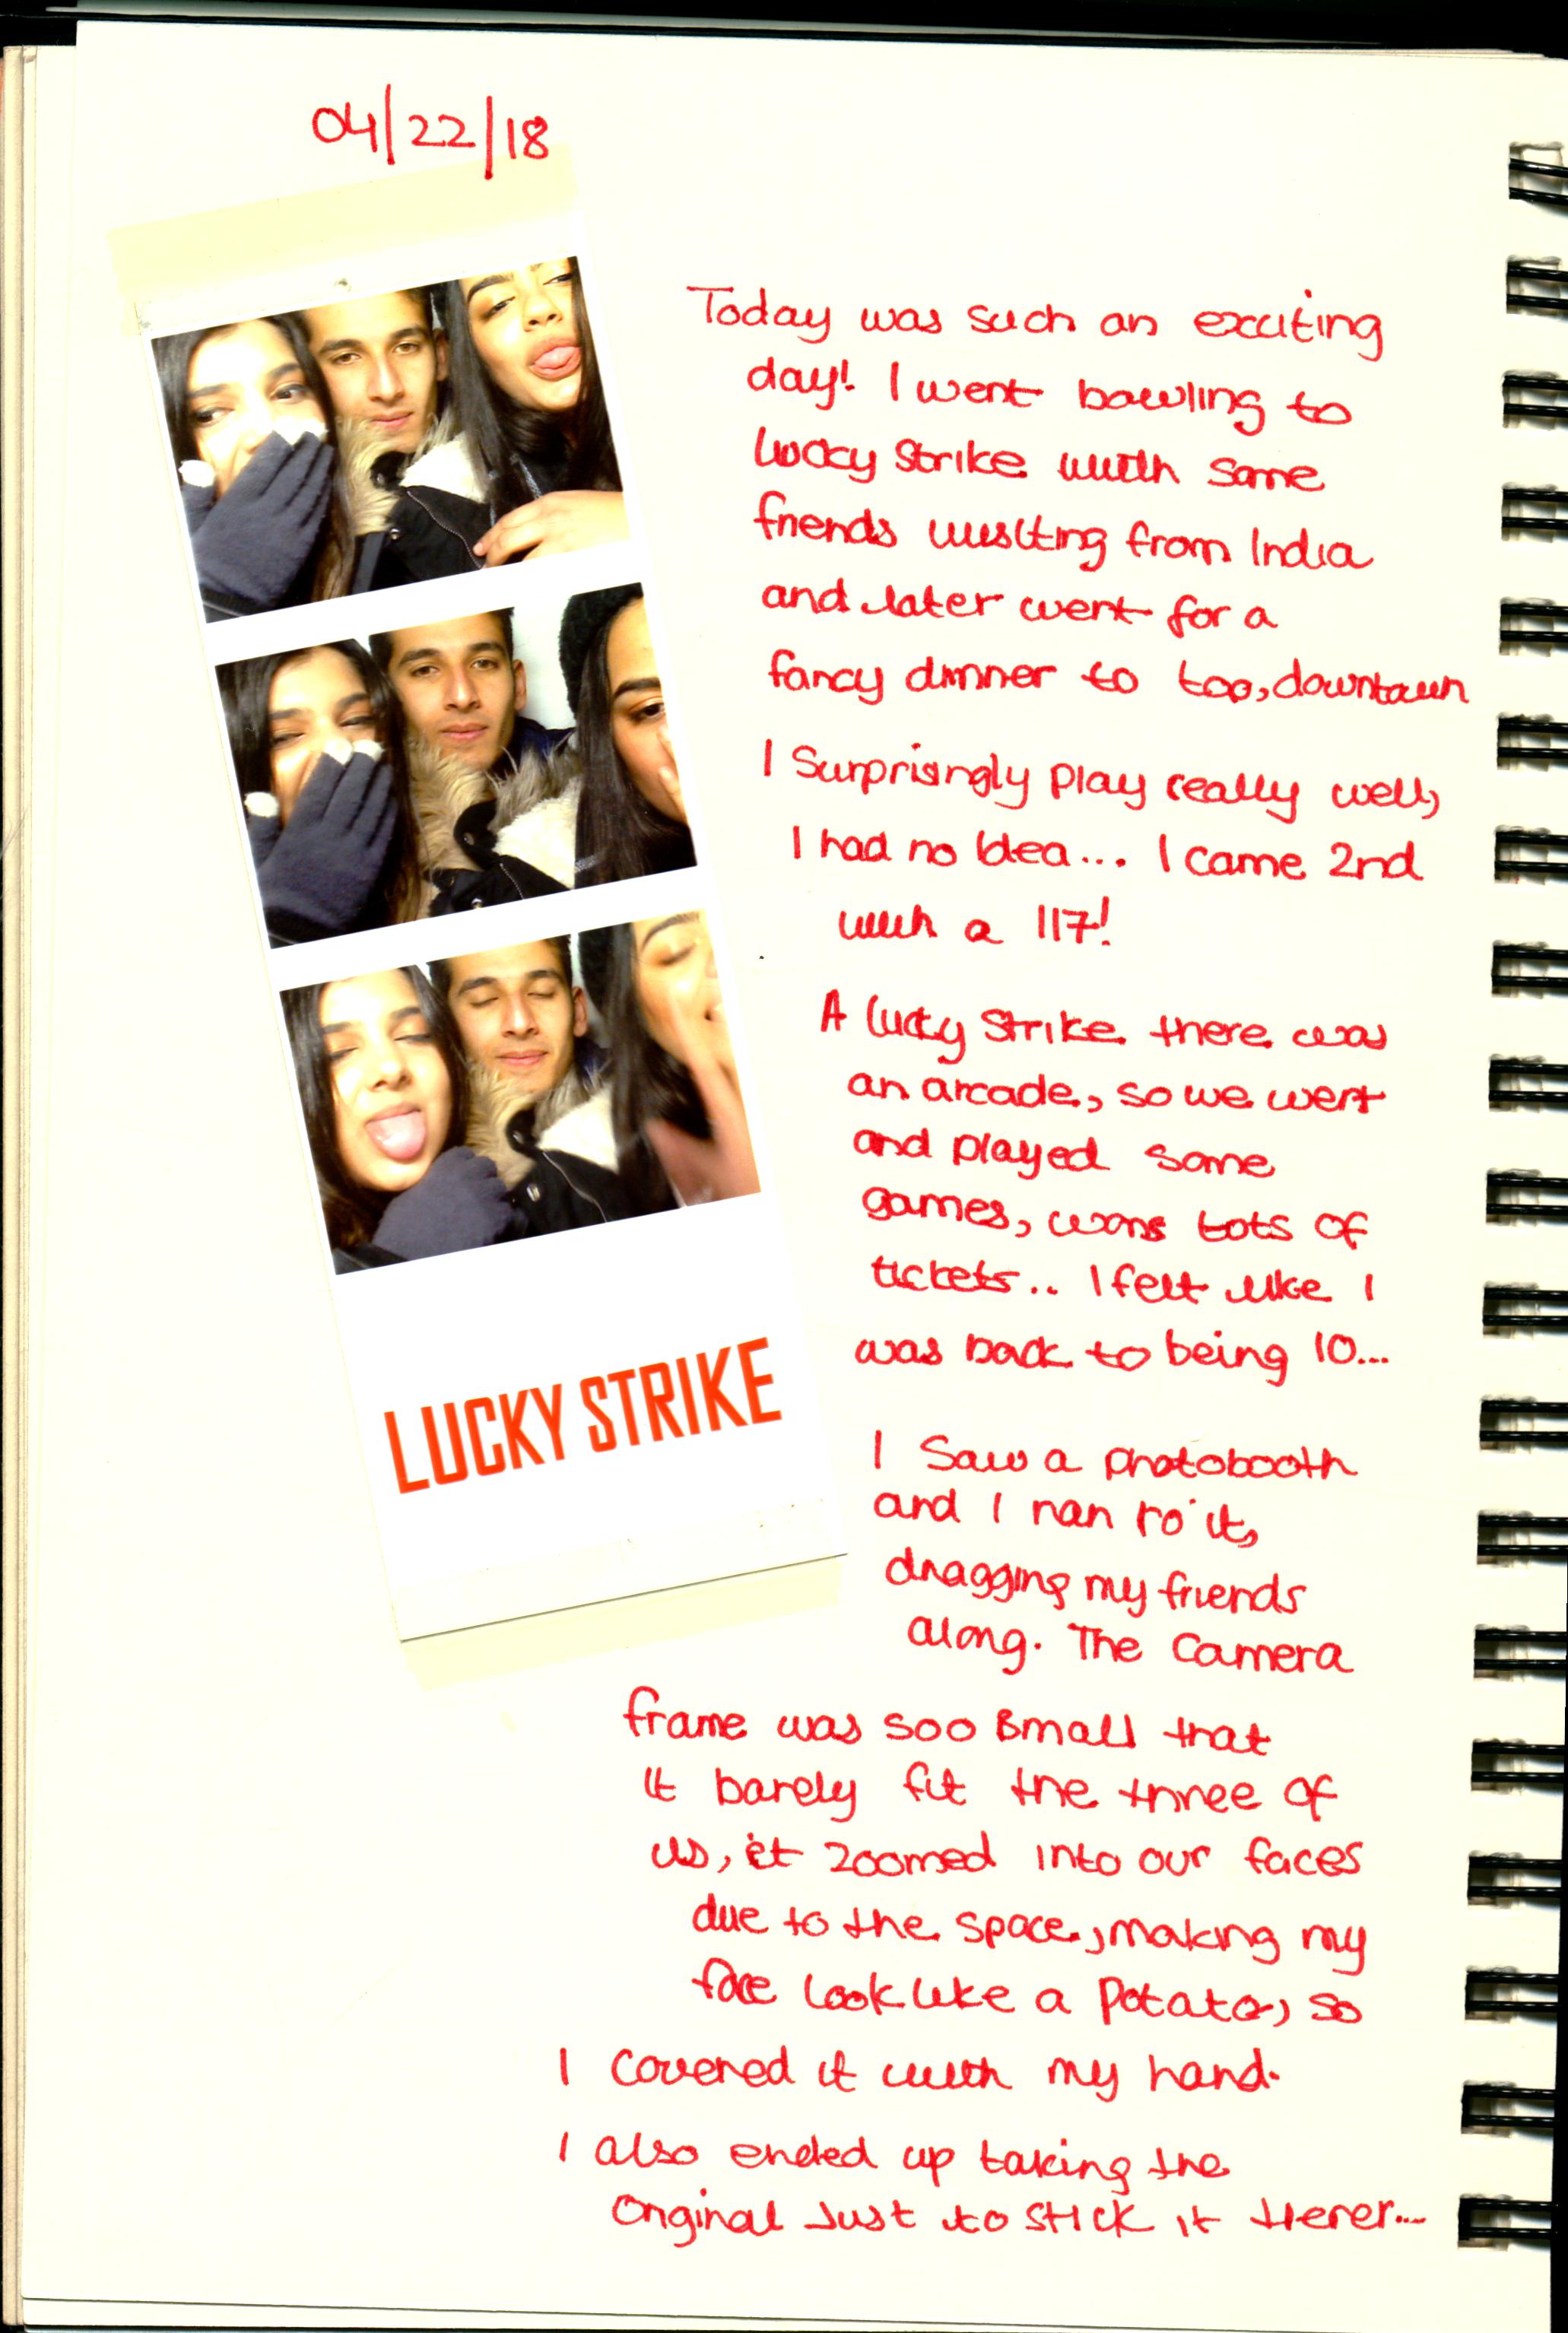 04/22/18
Today was such an exciting
day! I went bowling to
Lucky Strike with some
friends visiting from India
and later went for a
fancy dinner to too, downtown
I Surprisingly play really well,
I had no Idea... I came 2nd
with a 117!
A lucky Strike there was
an arcade, so we went
and played some
games, wons lots of
tickets.. I felt like I
was back to being 10...
I Saw a photobooth
and I ran to it,
dragging my friends
along. The Camera
frame was soo small that
it barely fit the three of
us, it zoomed into our faces
due to the space, making my
face look like a Potato, so
I covered it with my hand.
I also ended up taking the
Original Just to stick it Herer....
LUCKY STRIKE